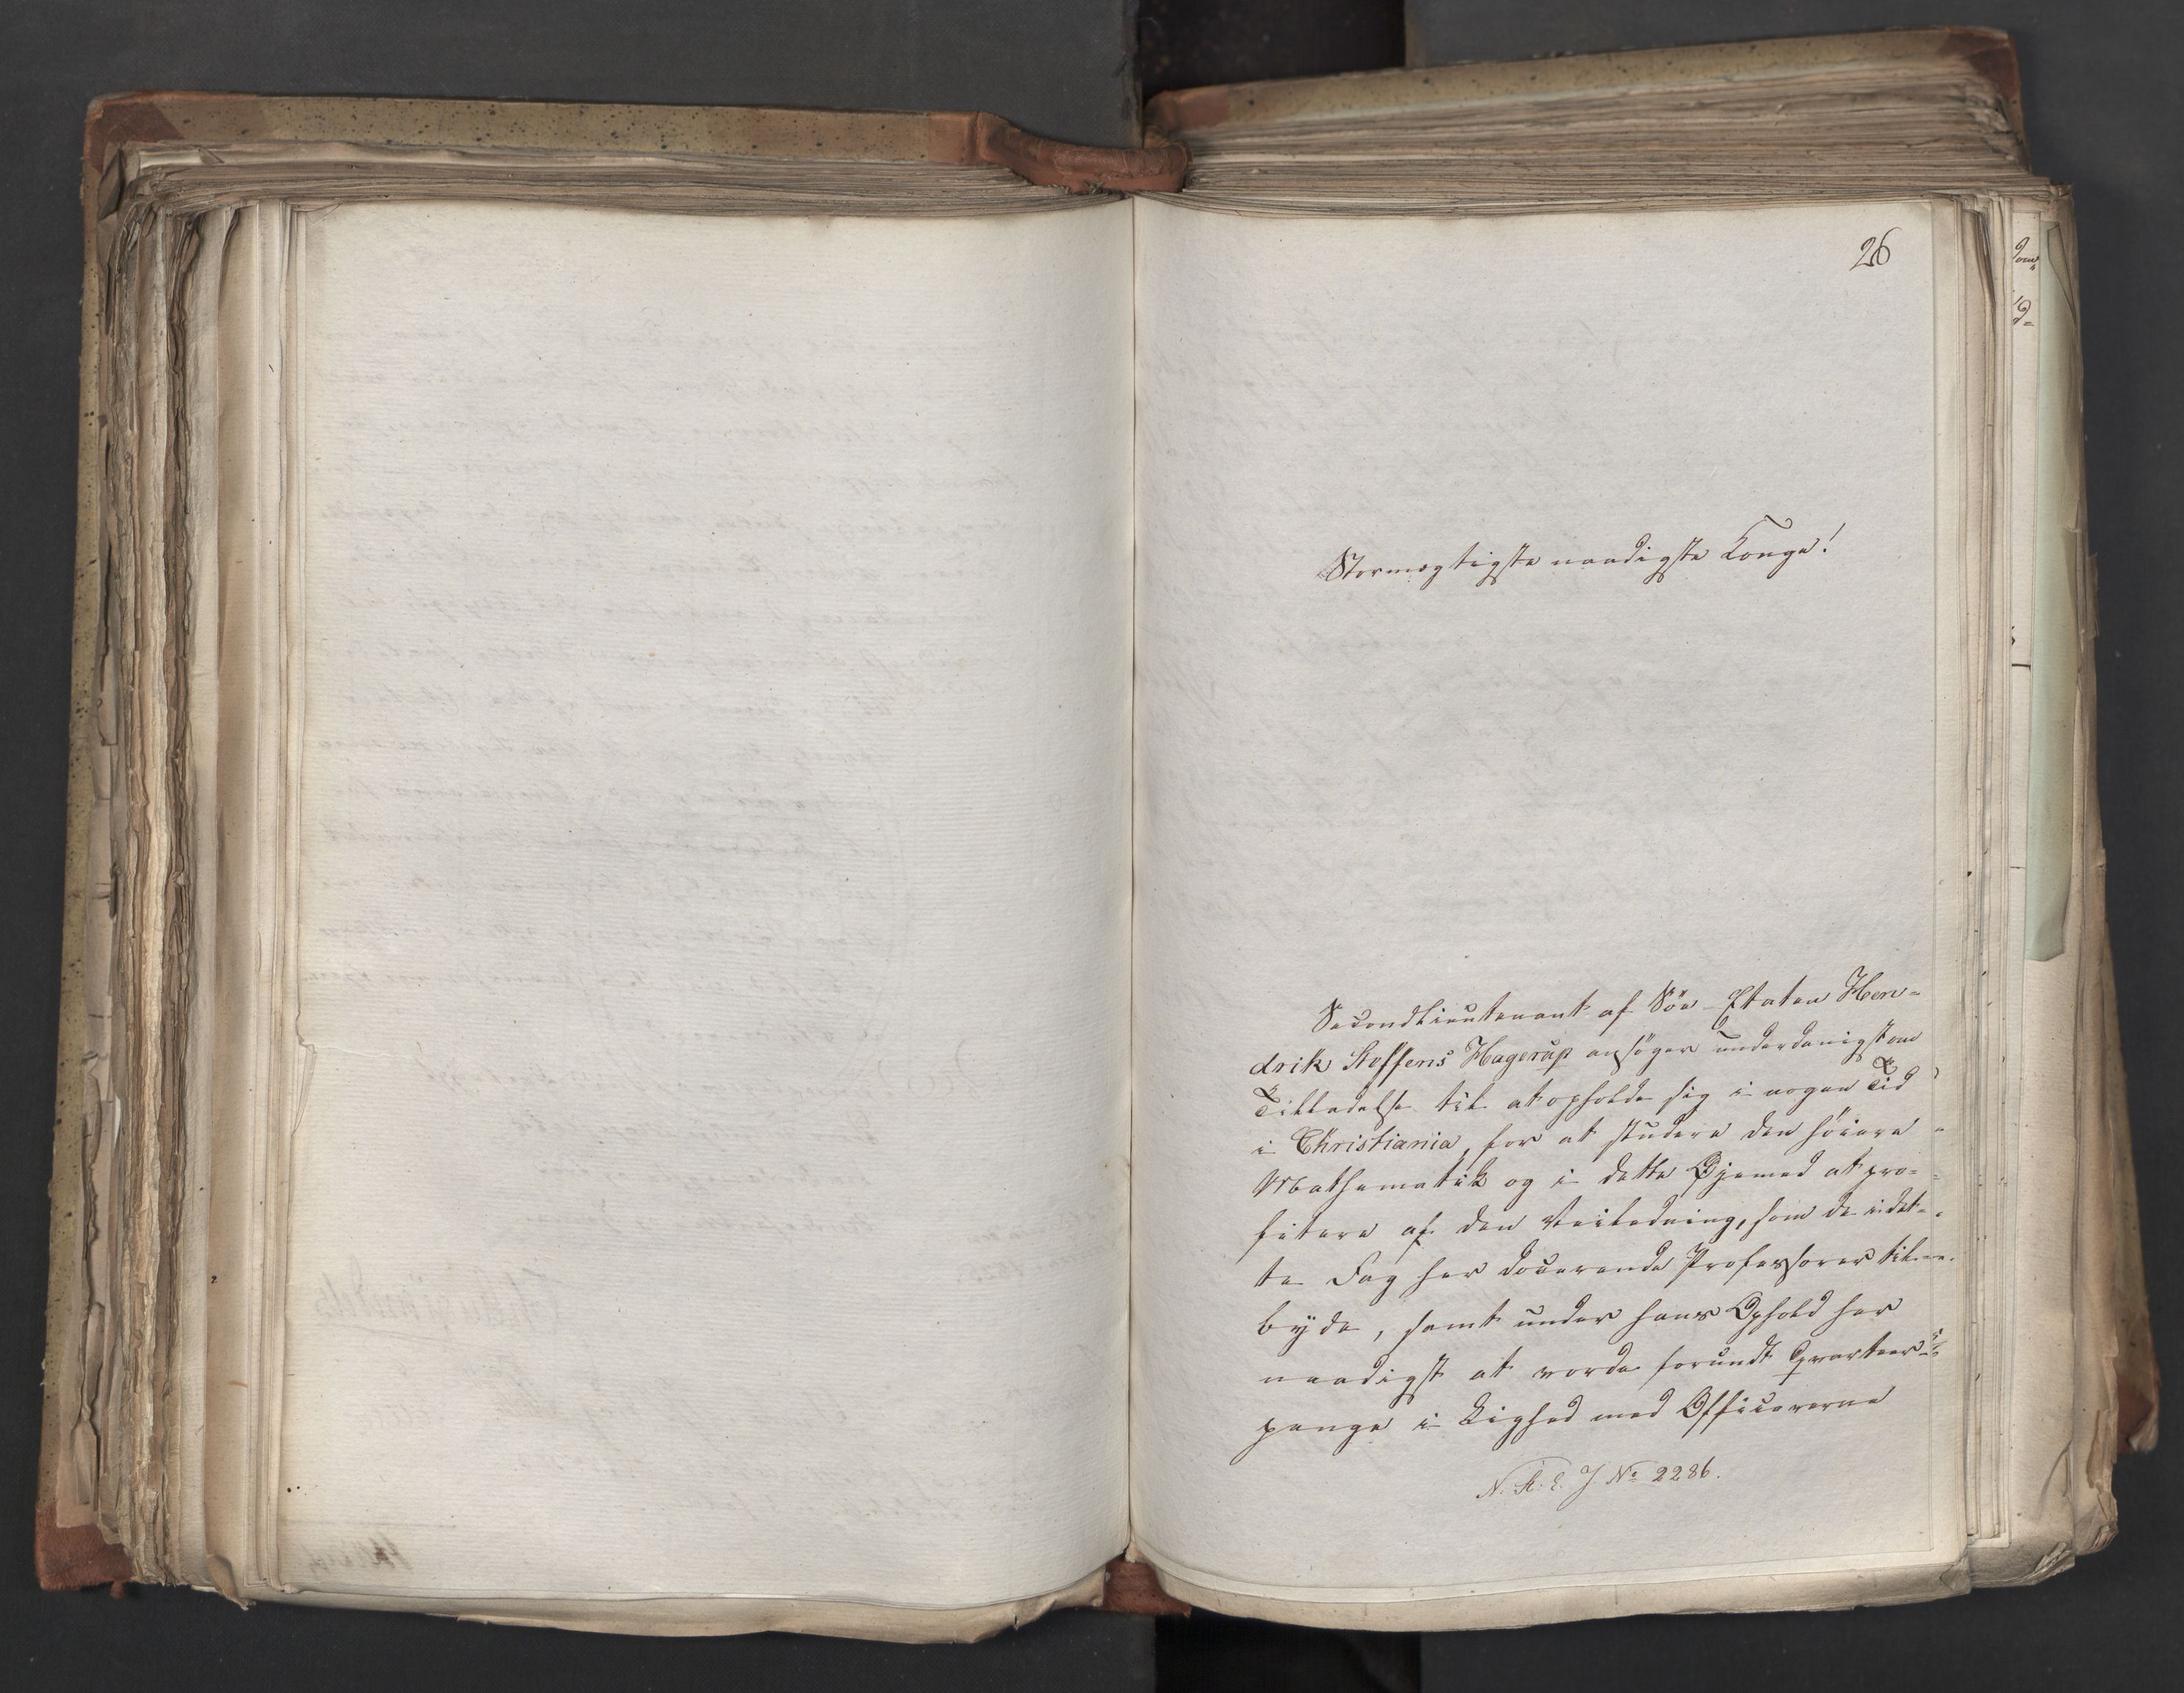 26
Stormægtigste naadigste Konge!
Secondlieutenant af Söe-Etaten Hen-
drik Steffens Hagerup ansöger underdanigst om
Tilladelse til at opholde sig i nogen Tid
i Christiania, for at studere den höiere
Mathematik og i dette Øjemed at pro-
fitere af den Veiledning, som de i det-
te Fag her docerende Professorer til-
byde, samt under hans Ophold her
naadigst at vorde forundt Qvarteer-
penge i Lighed med Officererne
N. A. E. J. No 2286.